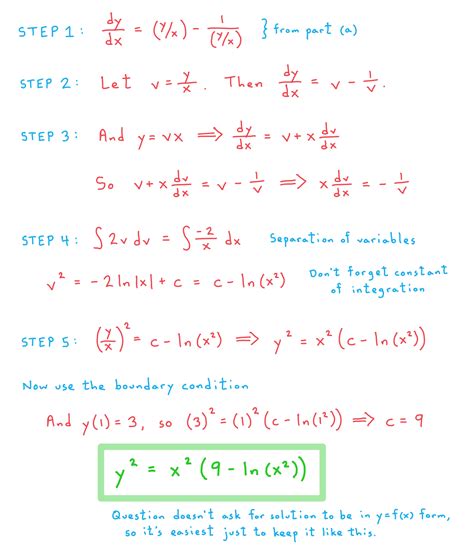 STEP 1: dy/dx = (y/x) - 1/(y/x) } from part (a)
STEP 2: Let v = y/x. Then dy/dx = v - 1/v.
STEP 3: And y = vx ⟹ dy/dx = v + x dv/dx
So v + x dv/dx = v - 1/v ⟹ x dv/dx = - 1/v
STEP 4: ∫ 2v dv = ∫ -2/x dx Separation of variables
v² = -2 ln|x| + c = c - ln(x²) Don't forget constant
of integration
STEP 5: (y/x)² = c - ln(x²) ⟹ y² = x² (c - ln(x²))
Now use the boundary condition
And y(1) = 3, so (3)² = (1)² (c - ln(1²)) ⟹ c = 9
y² = x² (9 - ln(x²))
Question doesn't ask for solution to be in y=f(x) form,
so it's easiest just to keep it like this.